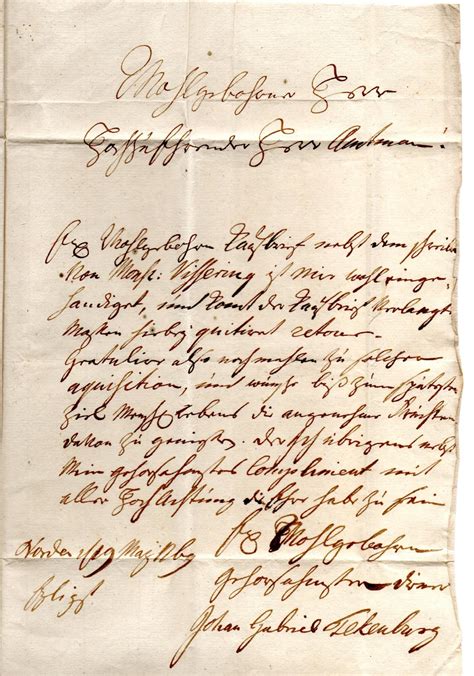 Wohlgebohrner Herr
Hochzuehrender Herr Amtman!
Ew Wohlgebohren Kaufbrief nebst dem schreiben
Von Monsr: Vissering ist mir wohl einge-
händiget, und komt der Kaufbrief verlangter
Maßen hierbey quitiret retour.
Gratulire also nochmahlen zu solcher
aquisition, und wünsche biß zum spätesten
Ziel Menschl Lebens die angenehme Früchten
davon zu genießen. Der ich übrigens nebst
Mein gehorsahmstes Compliment mit
aller Hochachtung die Ehre habe zu sein
Ew Wohlgebohren
Norden 19 May
Eyligst
gehorsahmster diener
Johan Gabriel Tekenburg